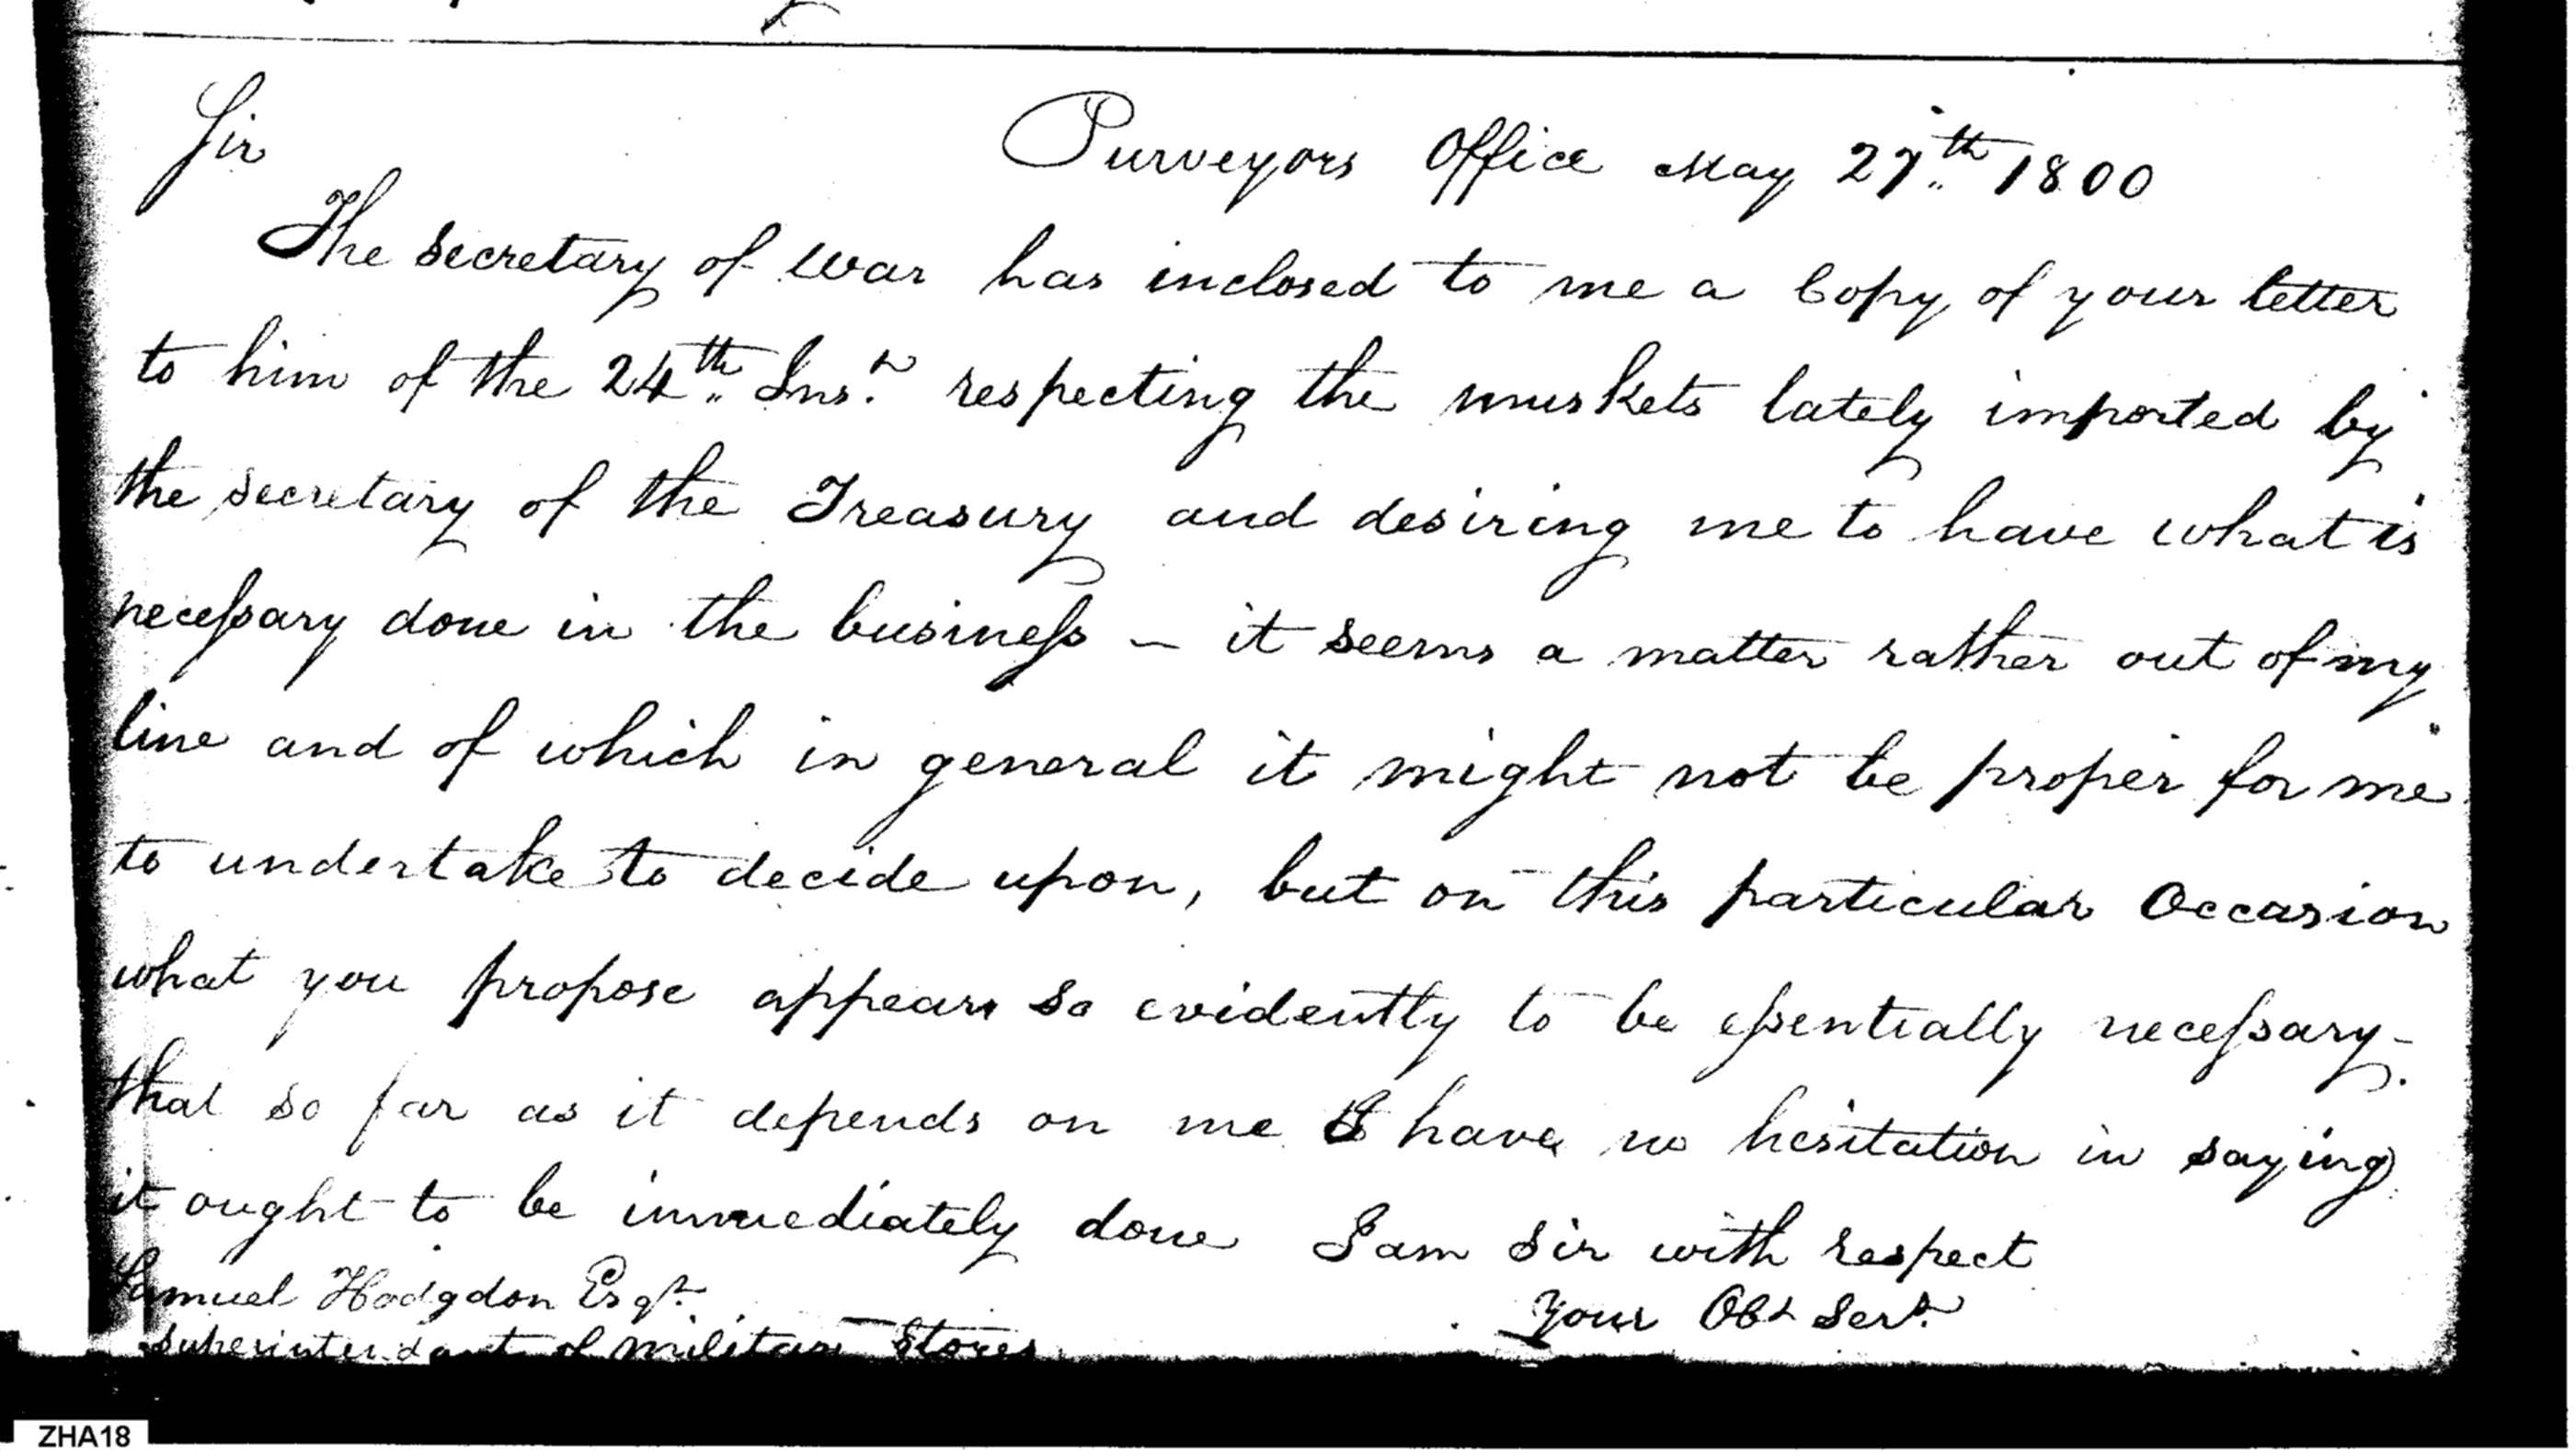 Sir
Purveyors Office May 27th 1800
The secretary of war has inclosed to me a Copy of your letter
to him of the 24th Inst. respecting the muskets lately imported by
the secretary of the Treasury and desiring me to have what is
necessary done in the business - it seems a matter rather out of my
line and of which in general it might not be proper for me
to undertake to decide upon, but on this particular Occasion
what you propose appears so evidently to be essentially necessary -
that so far as it depends on me I have no hesitation in saying
it ought to be immediately done I am Sir with respect
Samuel Hodgdon Esqr.
Your Obt Sert.
Superintendant of military Stores
ZHA18